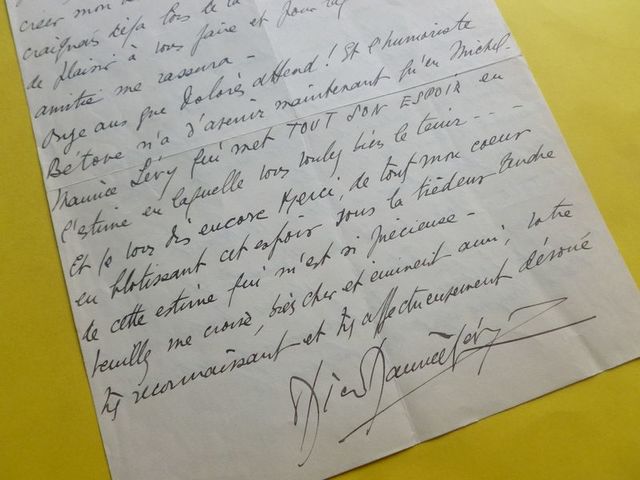 créer mon
craignais déjà lors de la
de plaisir à vous faire et pour
amitié me rassura -
Onze ans que Dolorès attend ! Et l'humoriste
Bétove n'a d'avenir maintenant qu'en Michel-
Maurice Lévy qui met TOUT SON ESPOIR en
l'estime en laquelle vous voulez bien le tenir - - -
Et je vous dis encore Merci, de tout mon coeur
en blotissant cet espoir sous la tiédeur tendre
de cette estime qui m'est si précieuse -
Veuillez me croire, très cher et éminent ami, votre
très reconnaissant et très affectueusement dévoué
Michel Maurice Lévy